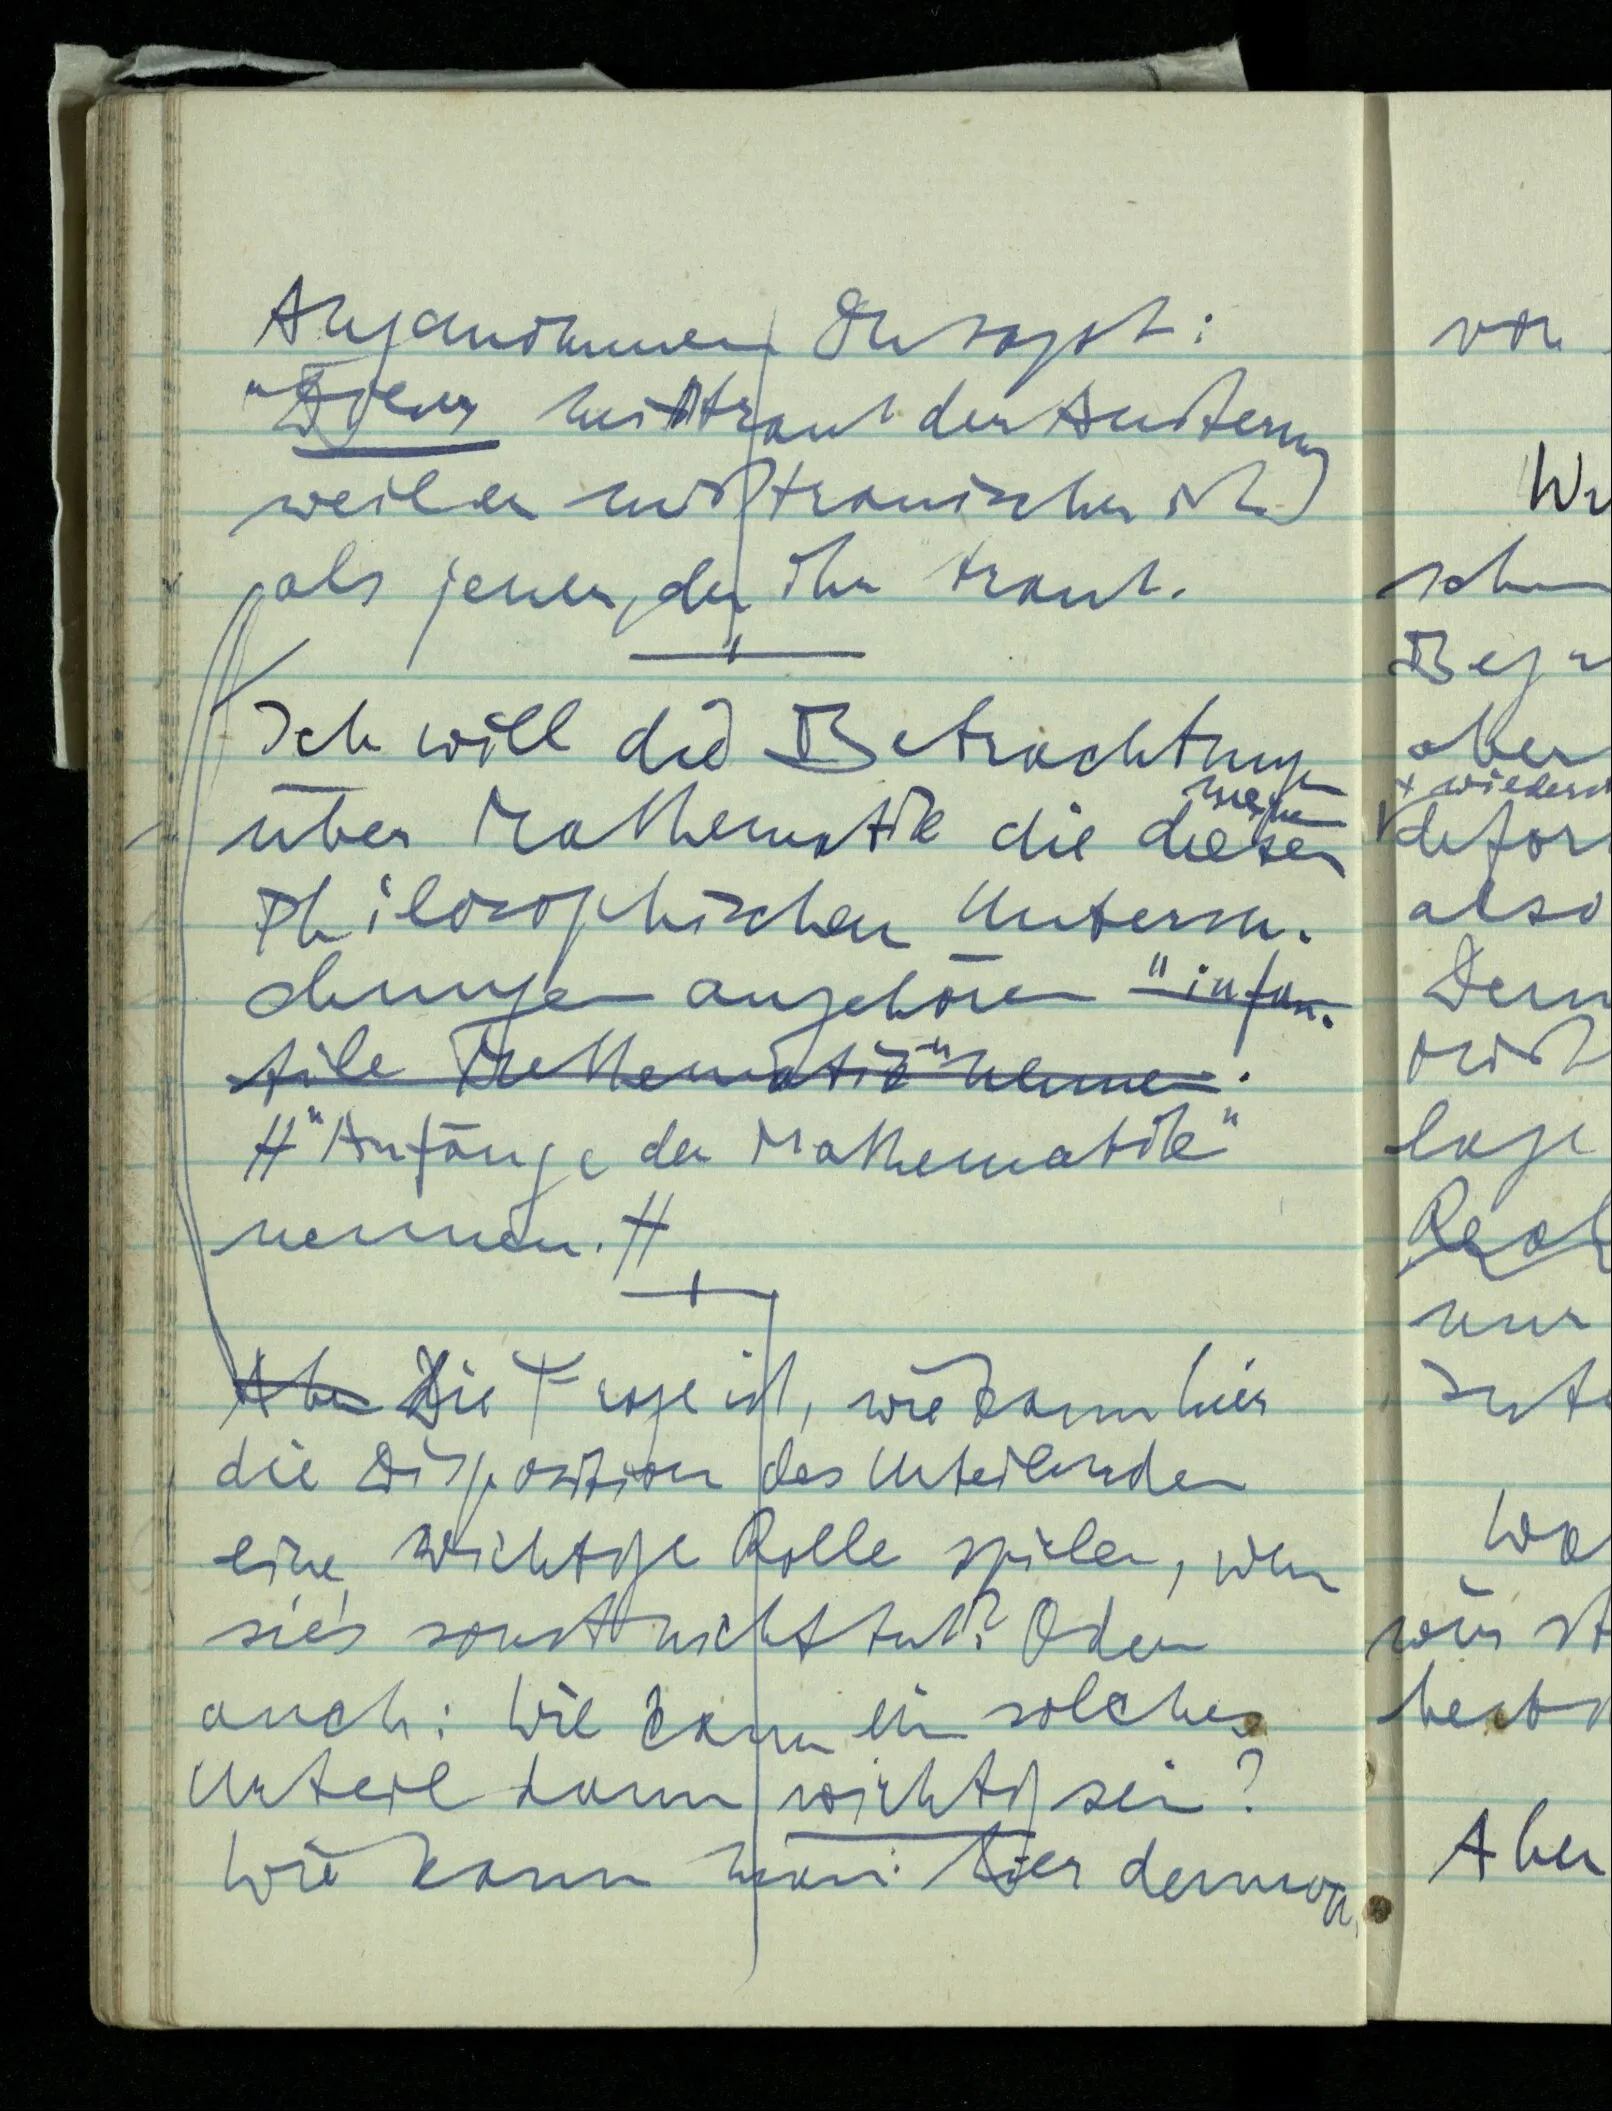 Angenommen Du sagst:
"Dieser mißtraut der Äußerung
weil er mißtrauischer ist
als jener, der ihr traut.
Ich will die Betrachtungen
über Mathematik die diesen
meinen
Philosophischen Untersu-
chungen angehören "infan-
tile Mathematik" nennen.
"Anfänge der Mathematik"
nennen.
Aber Die Frage ist, wie kann hier
die Disposition des Urteilenden
eine wichtige Rolle spielen, wenn
sie's sonst nicht tut? Oder
auch: Wie kann ein solches
Urteil dann wichtig sein?
Wie kann man hier dennoch
von
schen
aber
also
nur
Aber